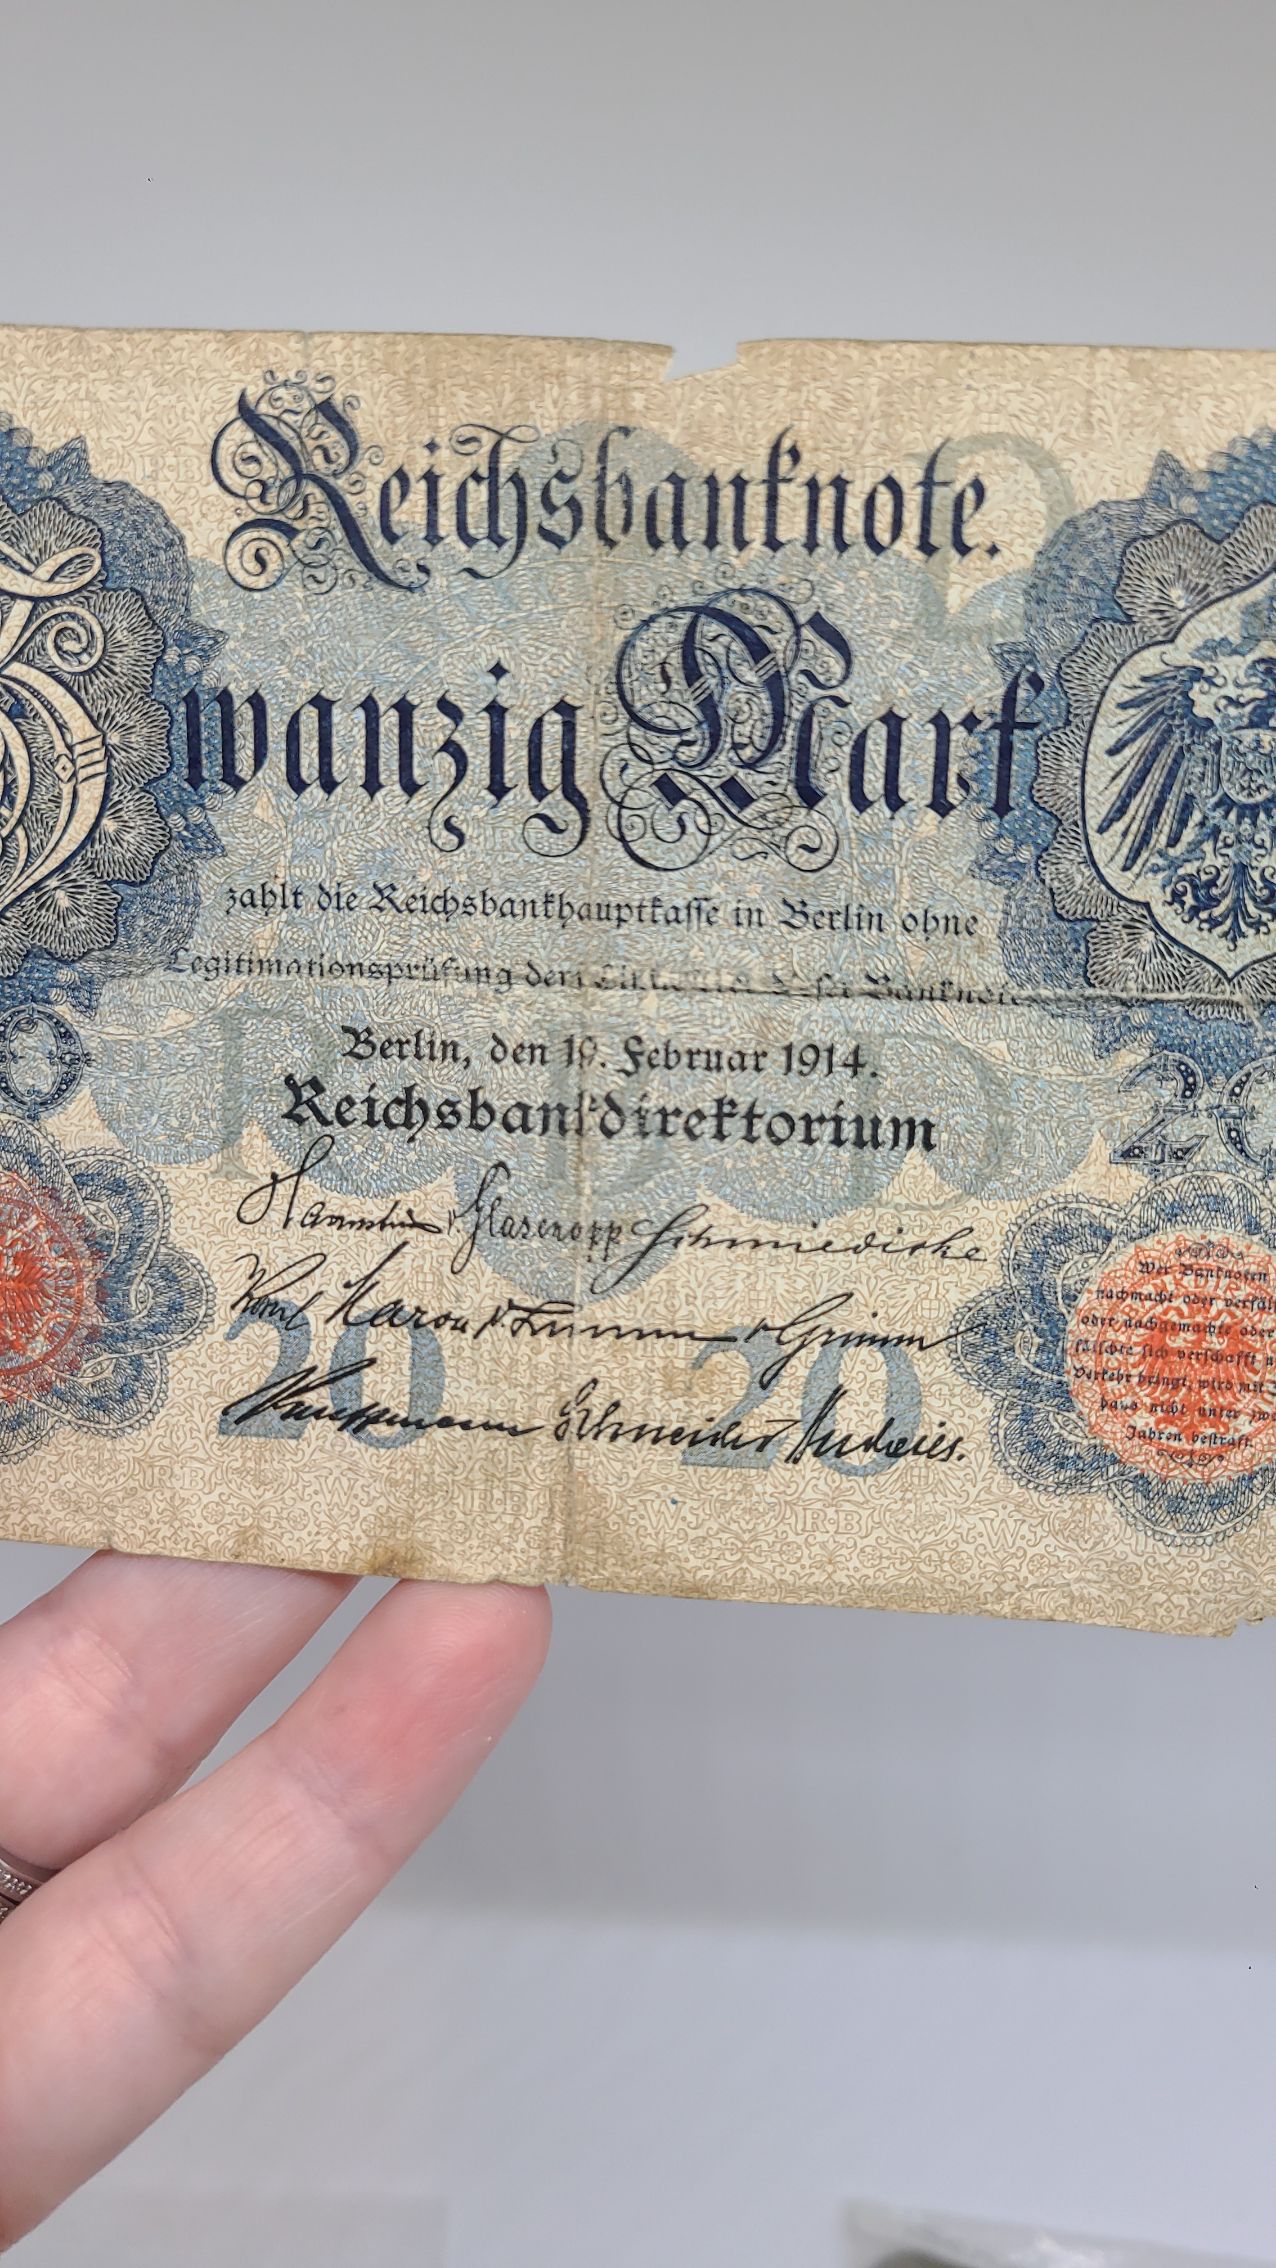 Reichsbanknote.
Zwanzig Mark
zahlt die Reichsbankhauptkasse in Berlin ohne
Legitimationsprüfung dem Banknote
Berlin, den 19. Februar 1914.
Reichsbankdirektorium
20
Havenstein v. Glasenapp Schmiedicke
Korn Maron v. Lumm v. Grimm
Kauffmann Schneider Budczies.
20 20
Wer Banknoten
nachmacht oder verfäl
oder nachgemachte oder
fälschte sich verschafft u
Verkehr bringt, wird mit
haus nicht unter zwe
Jahren bestraft.
RB W RB W